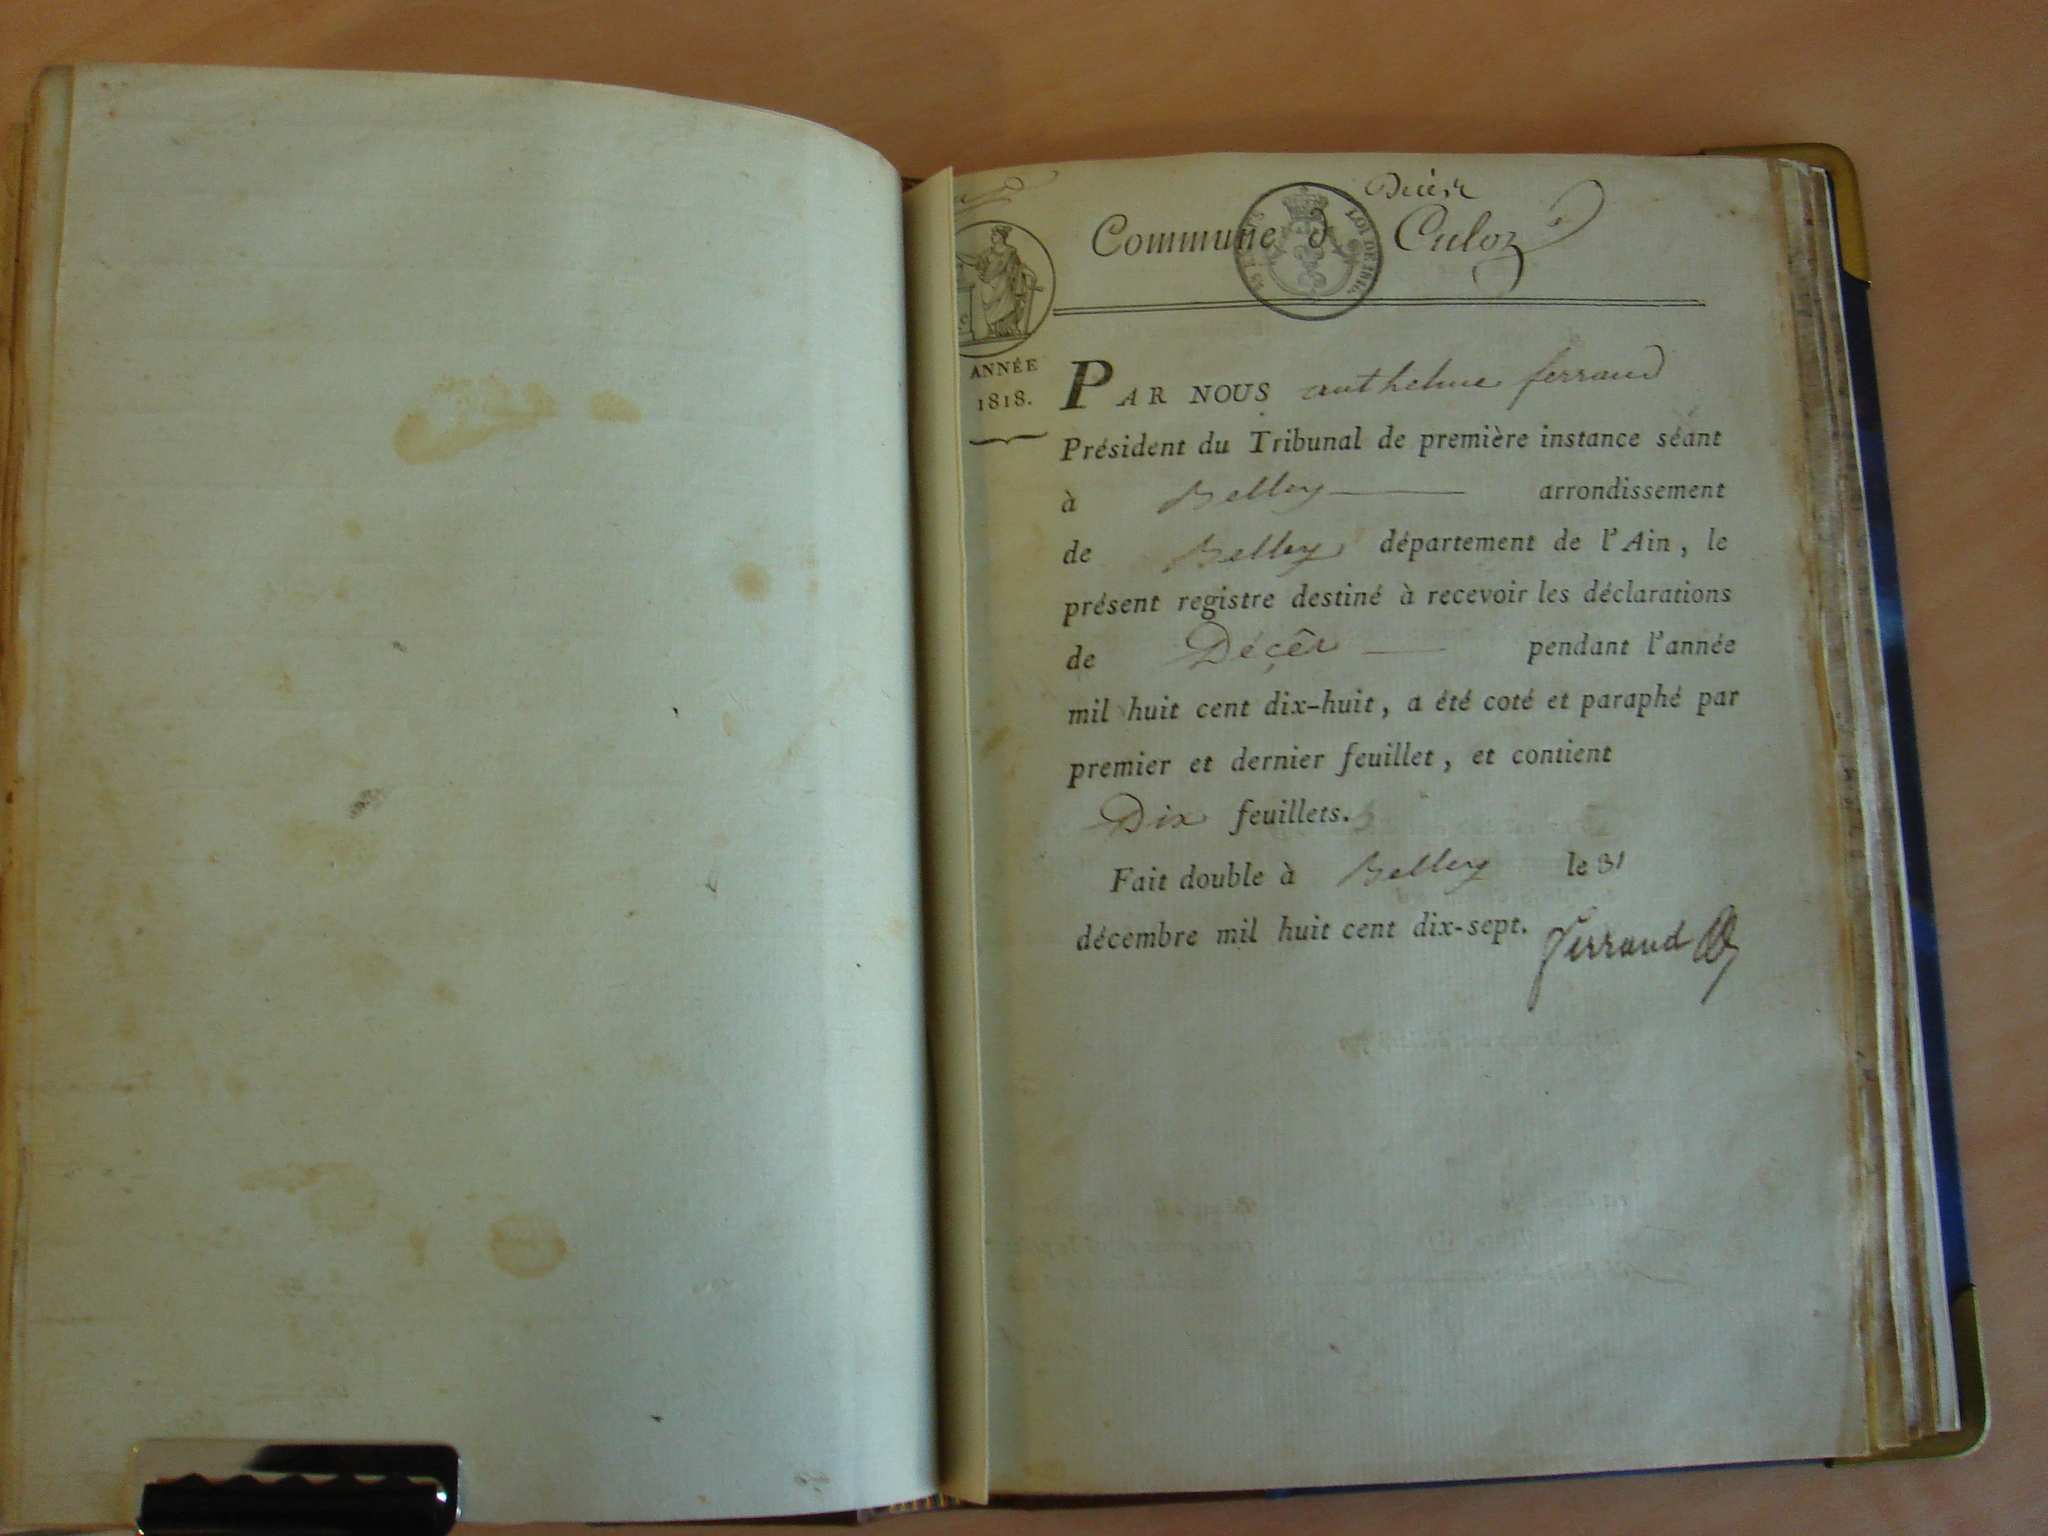 Décès
Commune d Culoz
LOI DE 1816.
ANNÉE
1818.
PAR NOUS anthelme ferrand
Président du Tribunal de première instance séant
à Belley arrondissement
de Belley département de l'Ain, le
présent registre destiné à recevoir les déclarations
de Décès pendant l'année
mil huit cent dix-huit, a été coté et paraphé par
premier et dernier feuillet, et contient
Dix feuillets.
Fait double à Belley le 31
décembre mil huit cent dix-sept.
ferrand